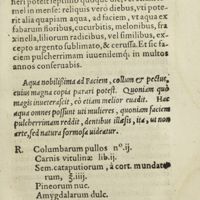 neri potest leptimo quoque
rie in mense: reliquis vero diebus, vti potest
tit alia quapiam aqua, ad faciem, vt aqua ex
fabarum floribus, cucurbitis, melonibus, fra
xinella, liliorum radicibus, vel similibus, ex
cepto argento sublimato, & cerussa. Et sic fa
ciem pulcherrimam iuuenilemq; in multos
annos conseruabis.
Aqua nobilissima ad Faciem, collum & pectus,
cuius magna copia parari potest. Quoniam quò
magis inueterascit, eò etiam melior euadit. Hac
aqua omnes possunt uti mulieres, quoniam faciem
pulcherrimam reddit, dentibus illæsis, ita, ut non
arte, sed natura formosa uideatur.
R. Columbarum pullos nº.ij.
Carnis vitulinæ lib.ij.
Sem. cataputiorum, à cort. mundato
rum, ℥.iiij.
Pineorum nuc.
Amygdalarum dulc.